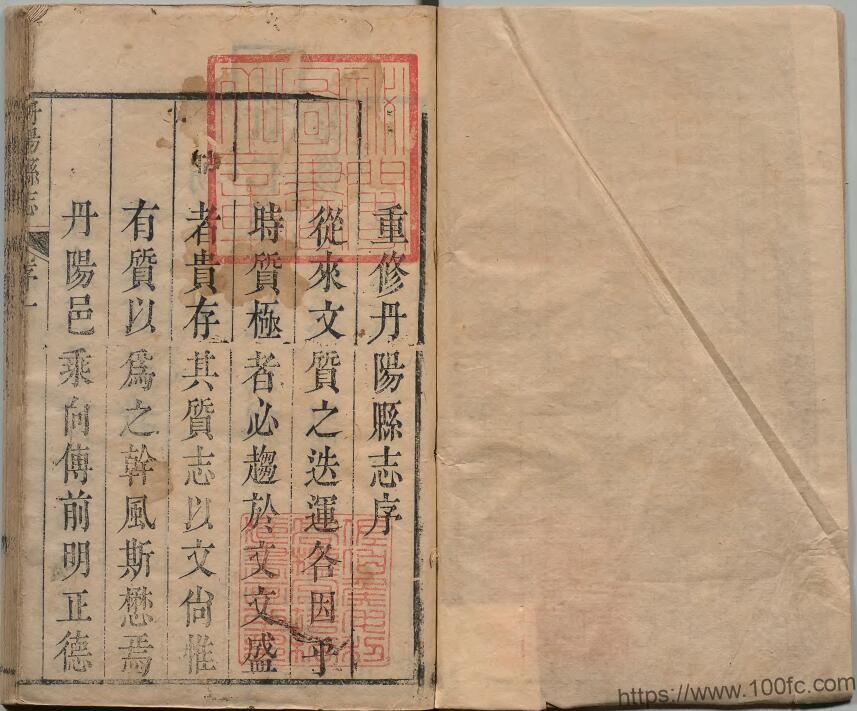 重修丹陽縣志序
從來文質之迭運各因乎
時質極者必趨於文文盛
者貴存其質志以文尙惟
有質以爲之幹風斯懋焉
丹陽邑乘向傳前明正德
丹陽縣志
序一
https://www.100fc.com